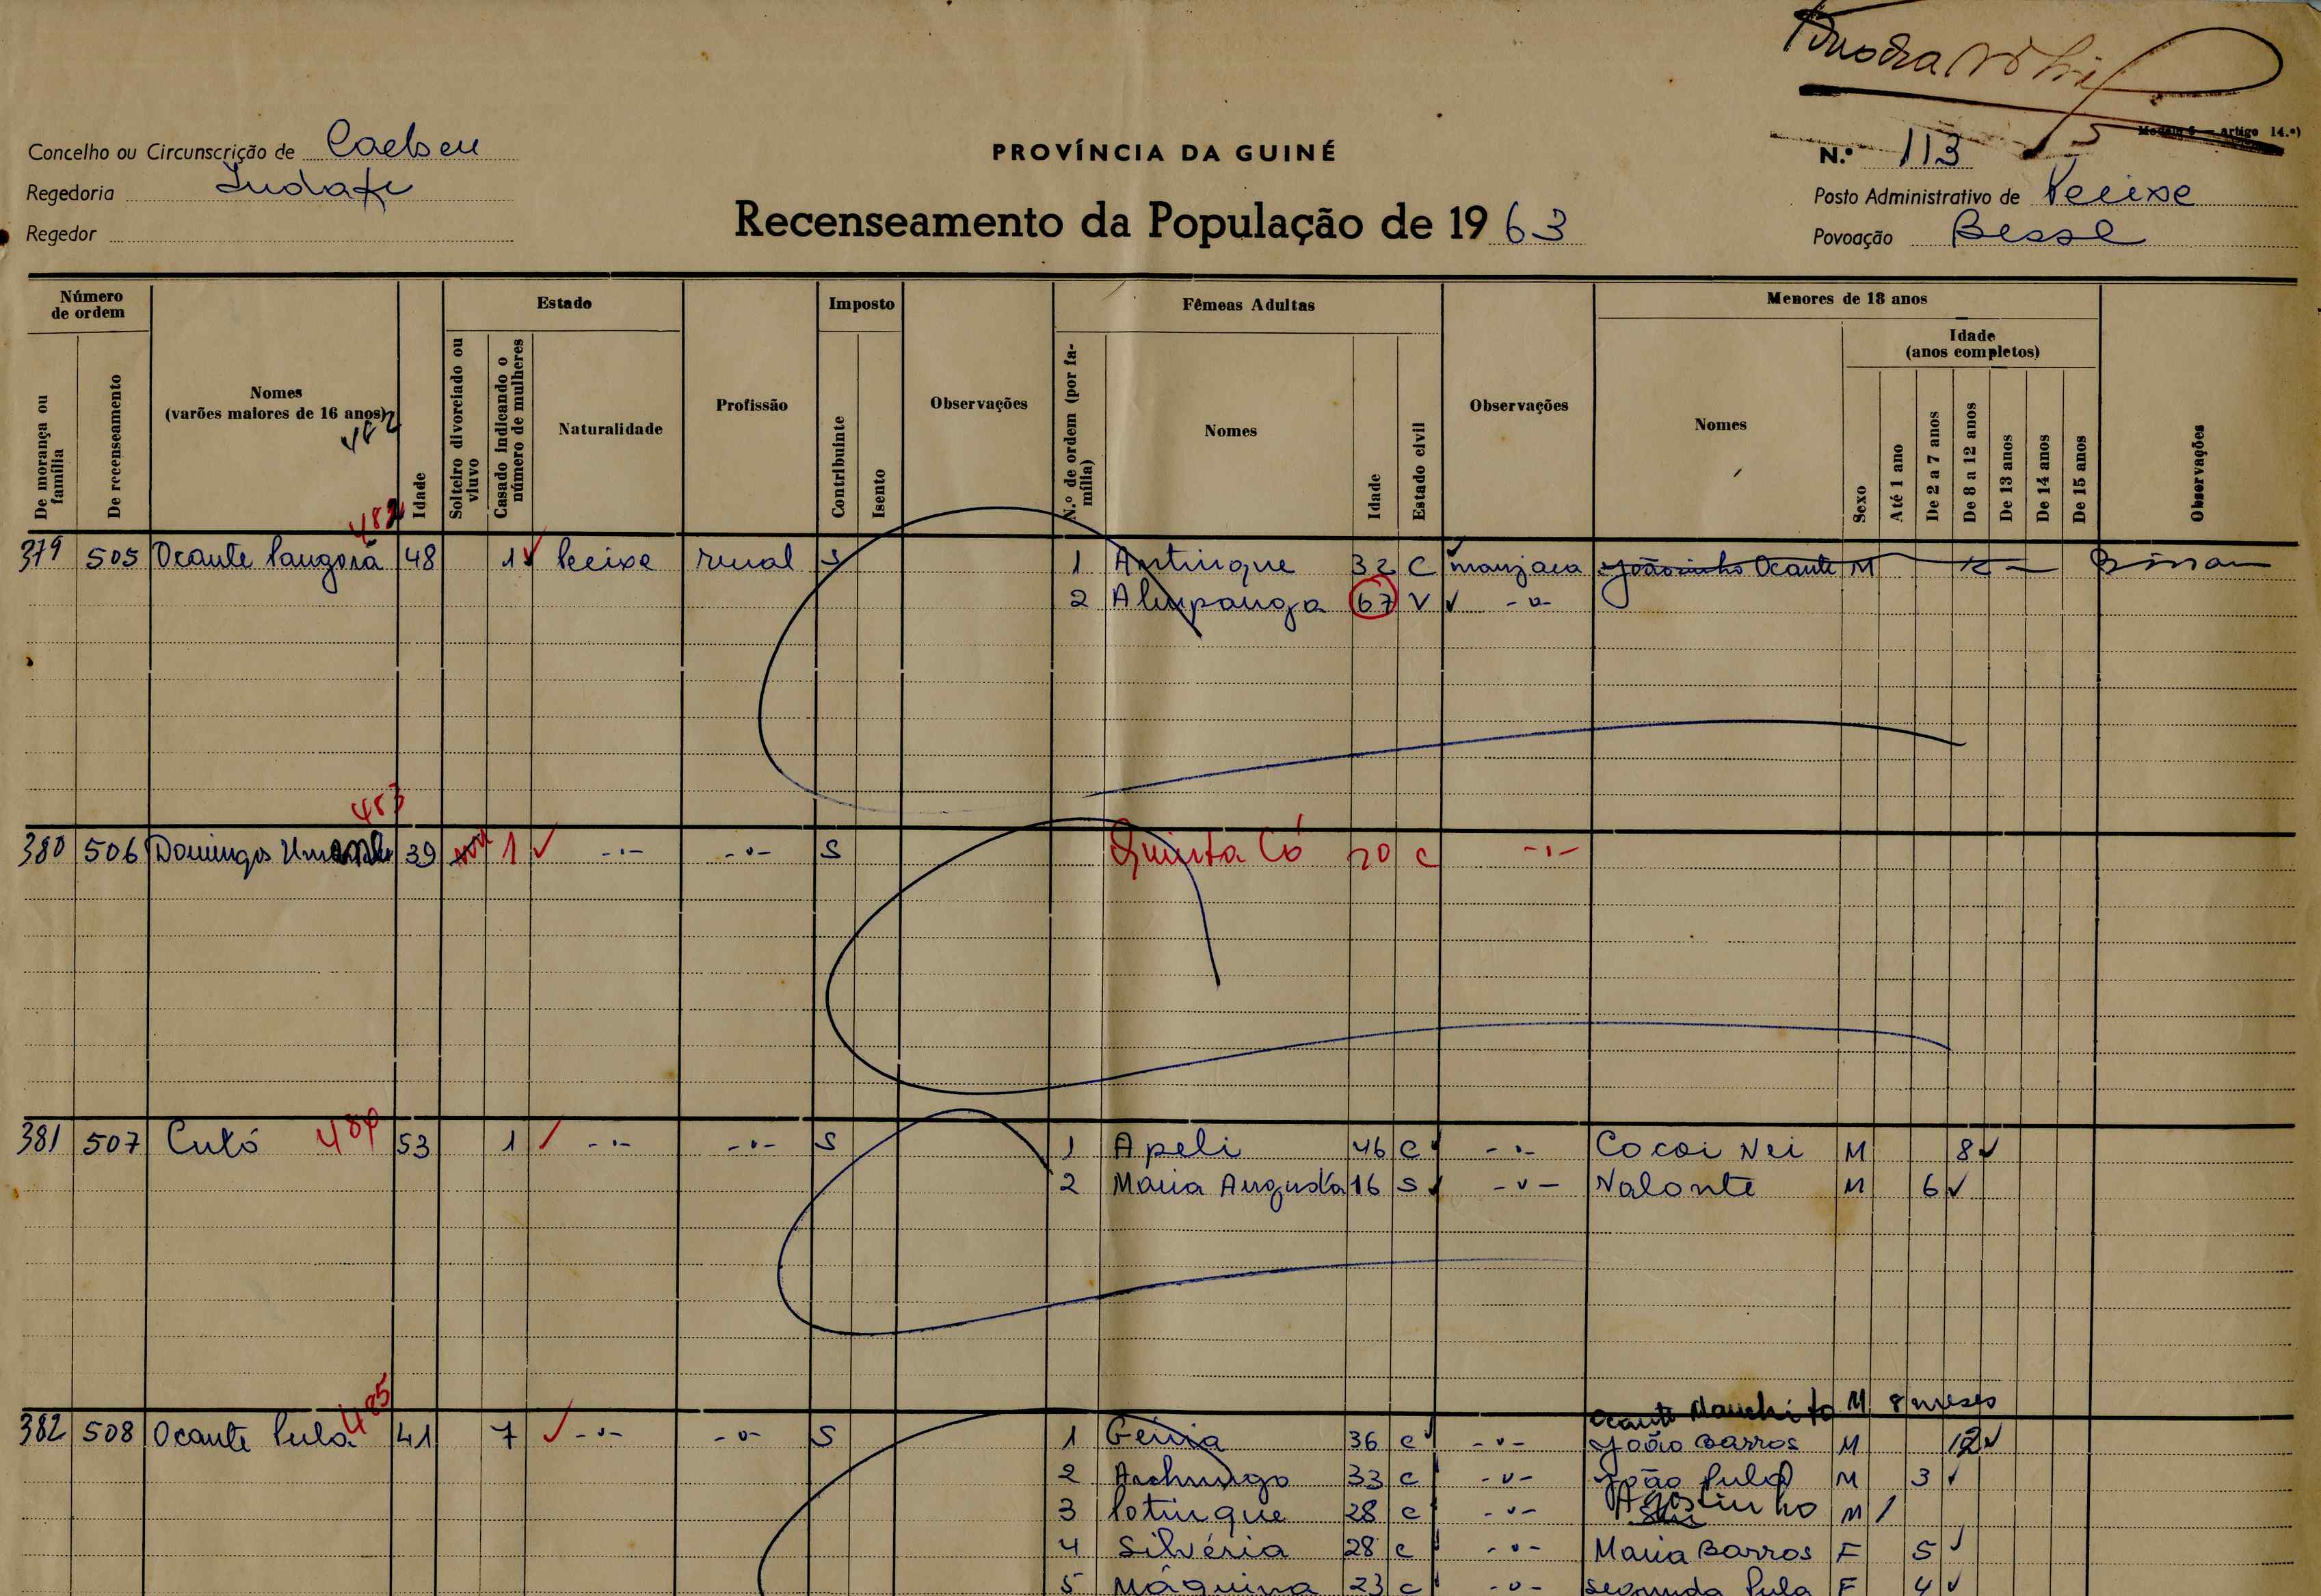 (Modelo 5 — Artigo 14.º)
Concelho ou Circunscrição de Caebeu
PROVÍNCIA DA GUINÉ
N.º 113
Regedoria
Posto Administrativo de Pecixe
Recenseamento da População de 1963
Regedor
Povoação Besse
Número de ordem
Estado
Imposto
Fêmeas Adultas
Menores de 18 anos
Idade (anos completos)
De morança ou família
De recenseamento
Nomes (varões maiores de 16 anos)
Idade
Solteiro divorciado ou viuvo
Casado indicando o número de mulheres
Naturalidade
Profissão
Contribuinte
Isento
Observações
N.º de ordem (por família)
Nomes
Idade
Estado civil
Observações
Nomes
Sexo
Até 1 ano
De 2 a 7 anos
De 8 a 12 anos
De 13 anos
De 14 anos
De 15 anos
Observações
482
482
379 505 Ocante 48 1 Pecixe rural S 1 Antinque 32 C manjaca Joãosinho Ocante M 12 Bissau
2 Alupanga 67 V -"-
483
380 506 Domingos 39 1 -"- -"- S Quinta Có 20 C -"-
381 507 Culó 484 53 1 -"- -"- S 1 Apeli 46 C -"- Cocoi Nei M 8
2 Maria Augusta 16 S -"- Nalonte M 6
485
Ocante M 8 meses
382 508 Ocante Pula 41 7 -"- -"- S 1 36 C -"- João Barros M 12
2 33 C -"- João Pula M 3
3 Potinque 28 C -"- Agostinho M 1
4 Silvéria 28 C -"- Maria Barros F 5
5 Máquina 23 C -"- Segunda Pula F 4